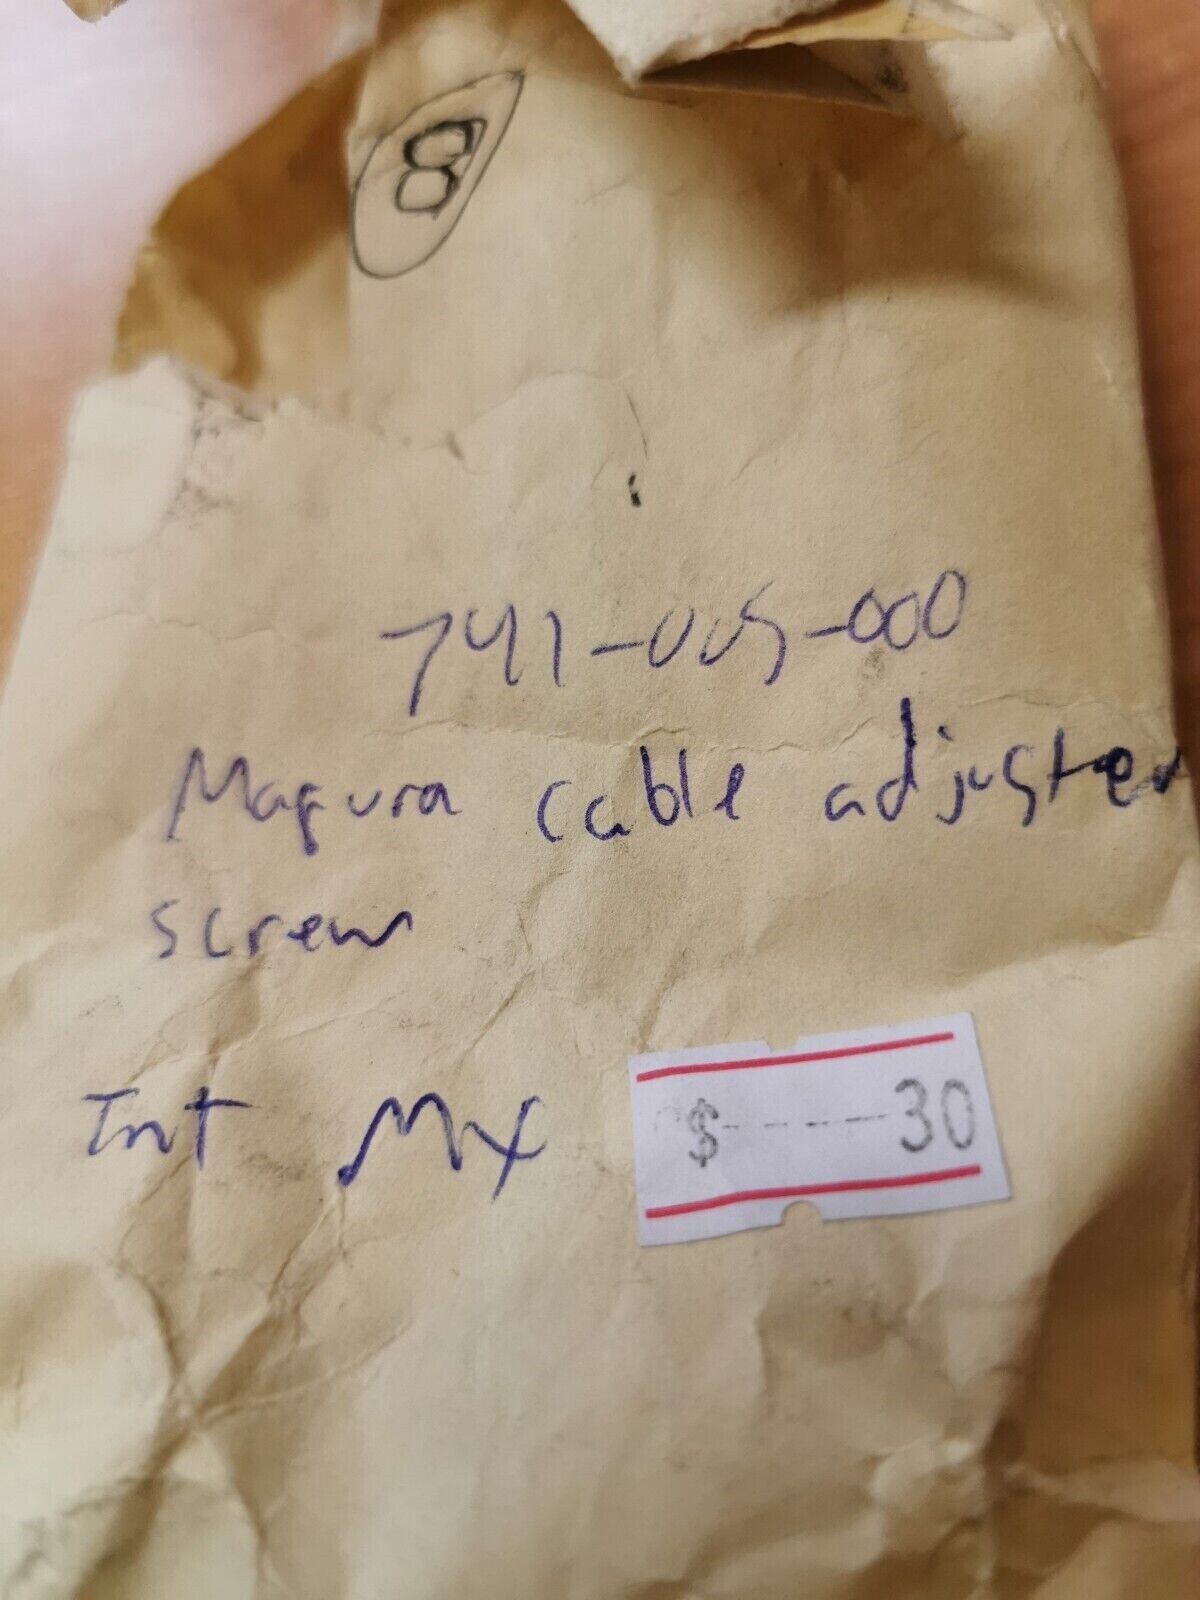 8
741-005-000
Magura cable adjuster
screw
Int MX
$-----30